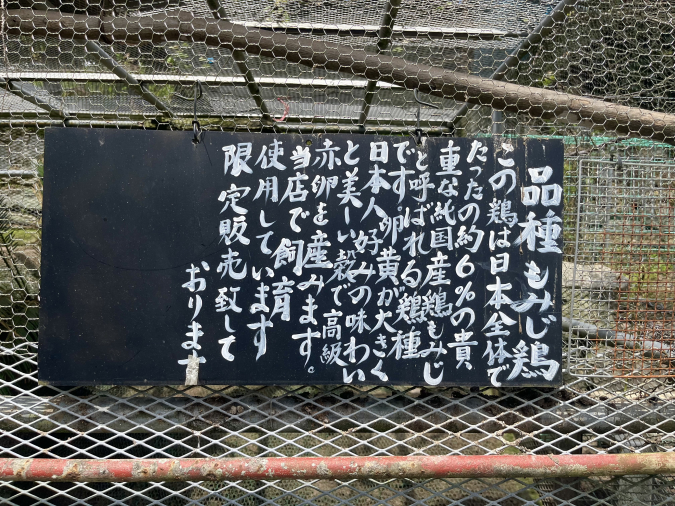 品種もみじ鶏
この鶏は日本全体で
たったの約6%の貴
重な純国産鶏もみじ
と呼ばれる鶏種
です。卵黄が大きく
日本人好みの味わい
と美しい殻で高級
赤卵を産みます。
当店で飼育
使用しています
限定販売致して
おります